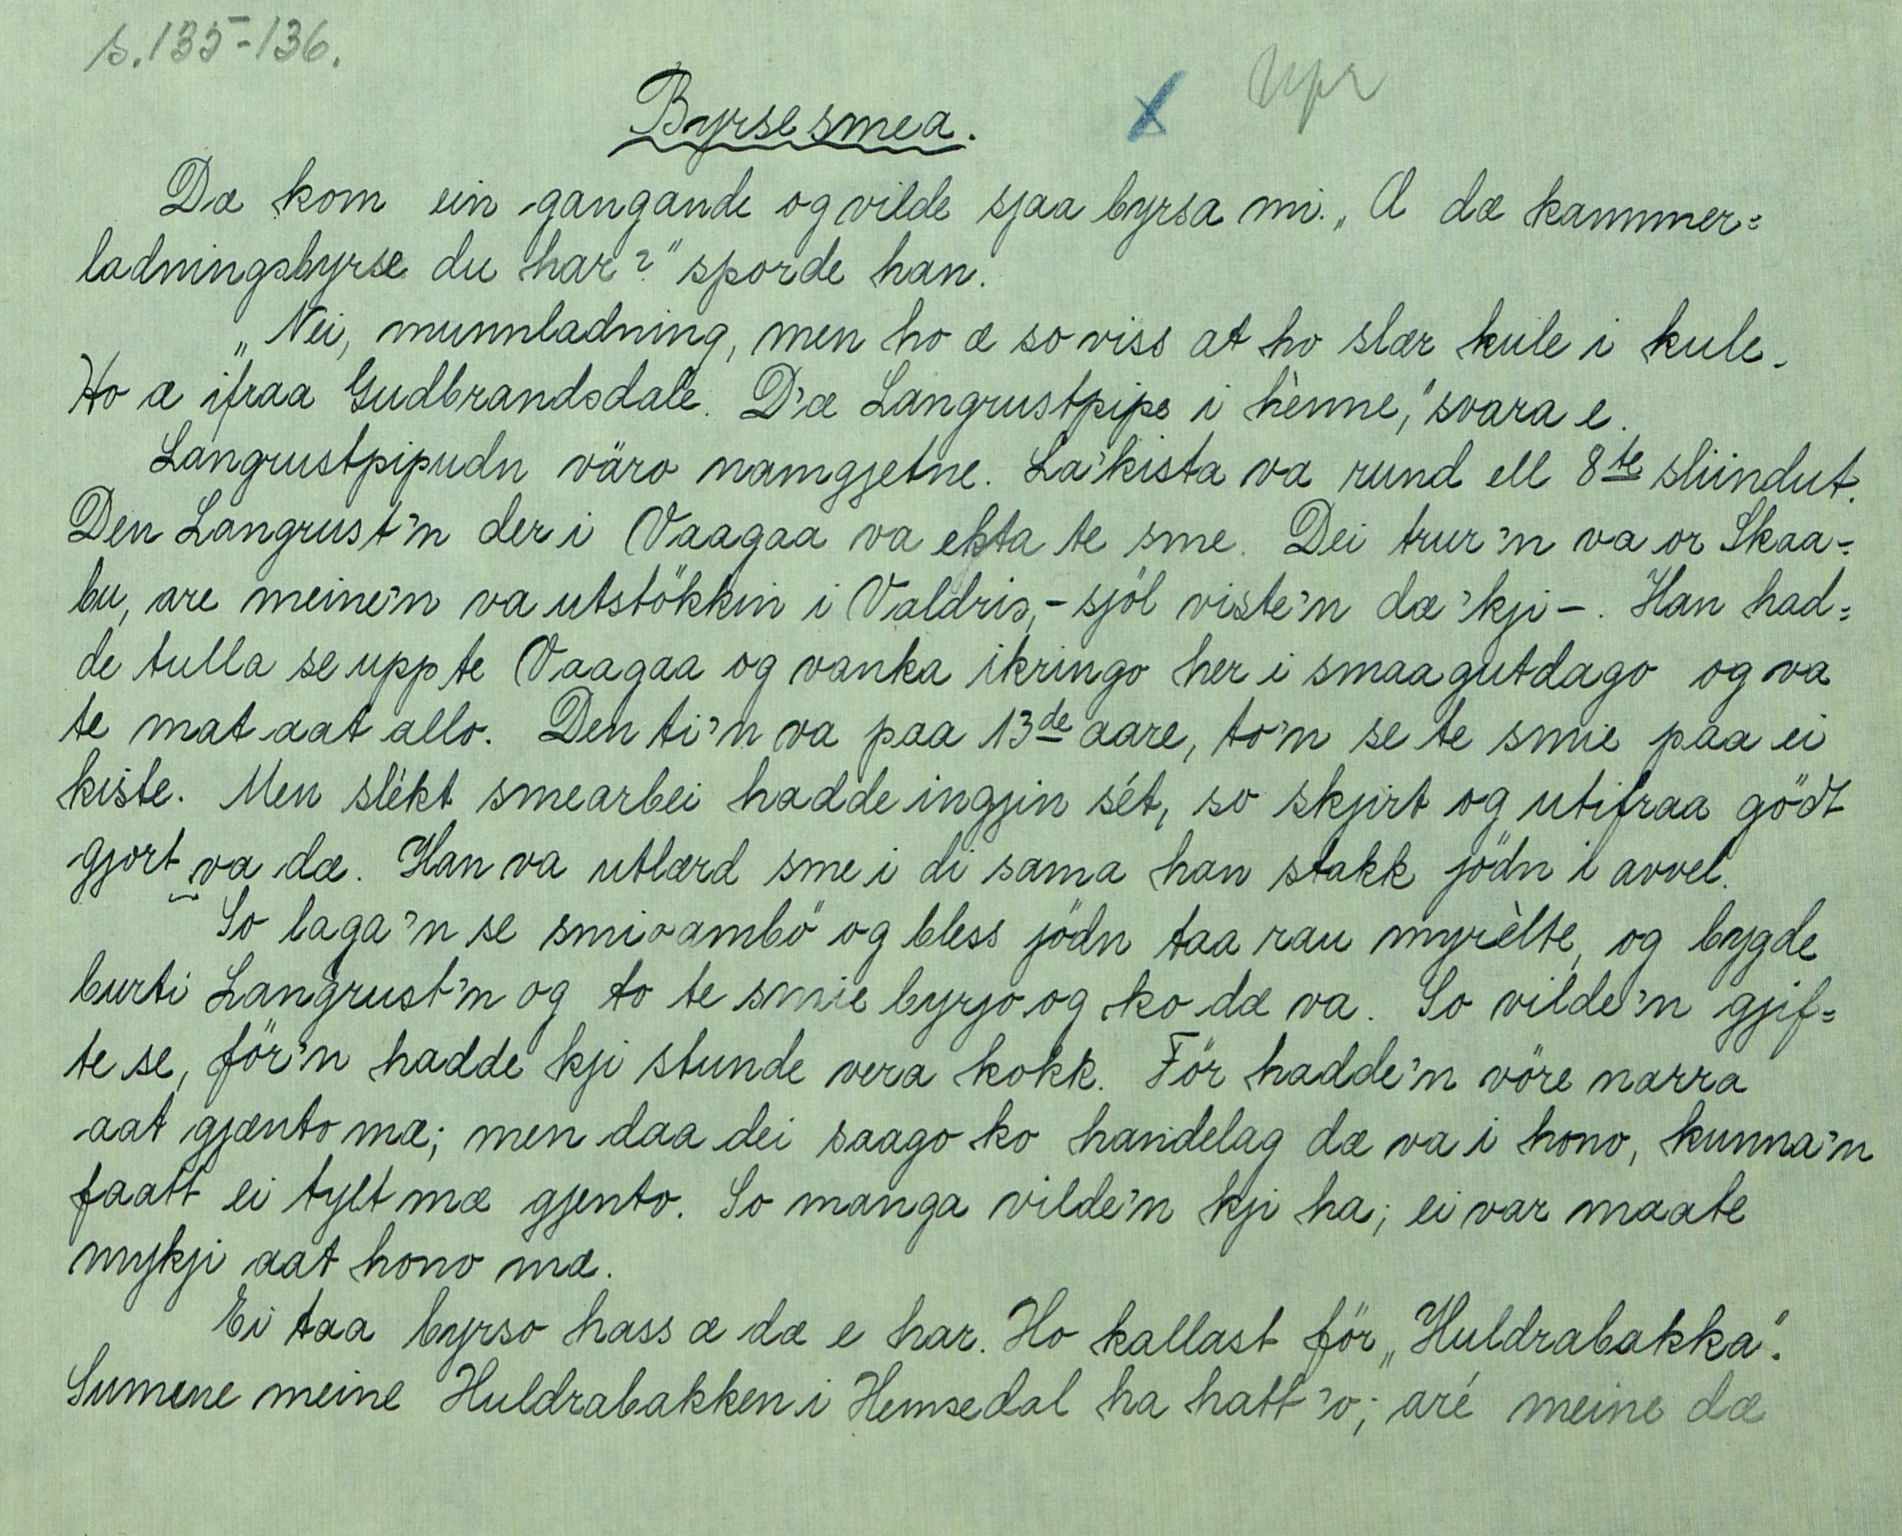 s. 135-136.
Upr
Byrsesmea.
Dæ kom ein gangande og vilde sjaa byrsa mi. „Æ dæ kammer=
ladningsbyrse du har?" sporde han.
„Nei, munnladning, men ho æ so viss at ho slær kule i kule.
Ho æ ifraa Gudbrandsdale. D'æ Langrustpipe i hènne," svara e.
Langrustpipudn väro namgjetne. La'kista va rund ell 8te sliindut.
Den Langrust'n der i Vaagaa va ekta te sme. Dei trur'n va or Skaa-
bu, are meine'n va utstökkin i Valdris, - sjöl viste'n dæ 'kji -. Han had=
de tulla se upp te Vaagaa og vanka ikringo her i smaagutdago og va
te mat aat allo. Den ti'n va paa 13de aare, to'n se te smie paa ei
kiste. Men slékt smearbei hadde ingjin sét, so skjirt og utifraa gödt
gjort va dæ. Han va utlærd sme i di sama han stakk jödn i avvel.
So laga'n se smioambö og bless jödn taa rau myrèlte, og bygde
burti Langrust'n og to te smie byrjo og ko dæ va. So vilde'n gjif=
te se, för'n hadde kji stunde vera kokk. För hadde'n vöre narra
aat gjænto mæ; men daa dei saago ko handelag dæ va i hono, kunna'n
faatt ei tylt mæ gjento. So manga vilde'n kji ha; ei var maate
mykji aat hono mæ.
Ei taa byrso hass æ dæ e har. Ho kallast för „Huldrabakka".
Sumene meine Huldrabakken i Hemsedal ha hatt 'o; aré meine dæ